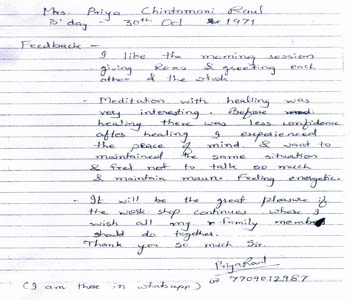 Mrs. Priya Chintamani Raul
B'day - 30th Oct 1971
Feedback -
I like the morning session
- giving Rose & greeting each
other & the whole
- Meditation with healing was
very interesting. Before
healing there was less confidence
after healing I experienced
the peace of mind. I want to
maintained the same situation
I feel not to talk so much
& maintain maun. Feeling energetic.
- It will be the great pleasure if
the work shop continues where I
wish all my family member
should do together.
Thank you so much Sir.
PriyaRaul
7709012987
(I am there in whatsapp)